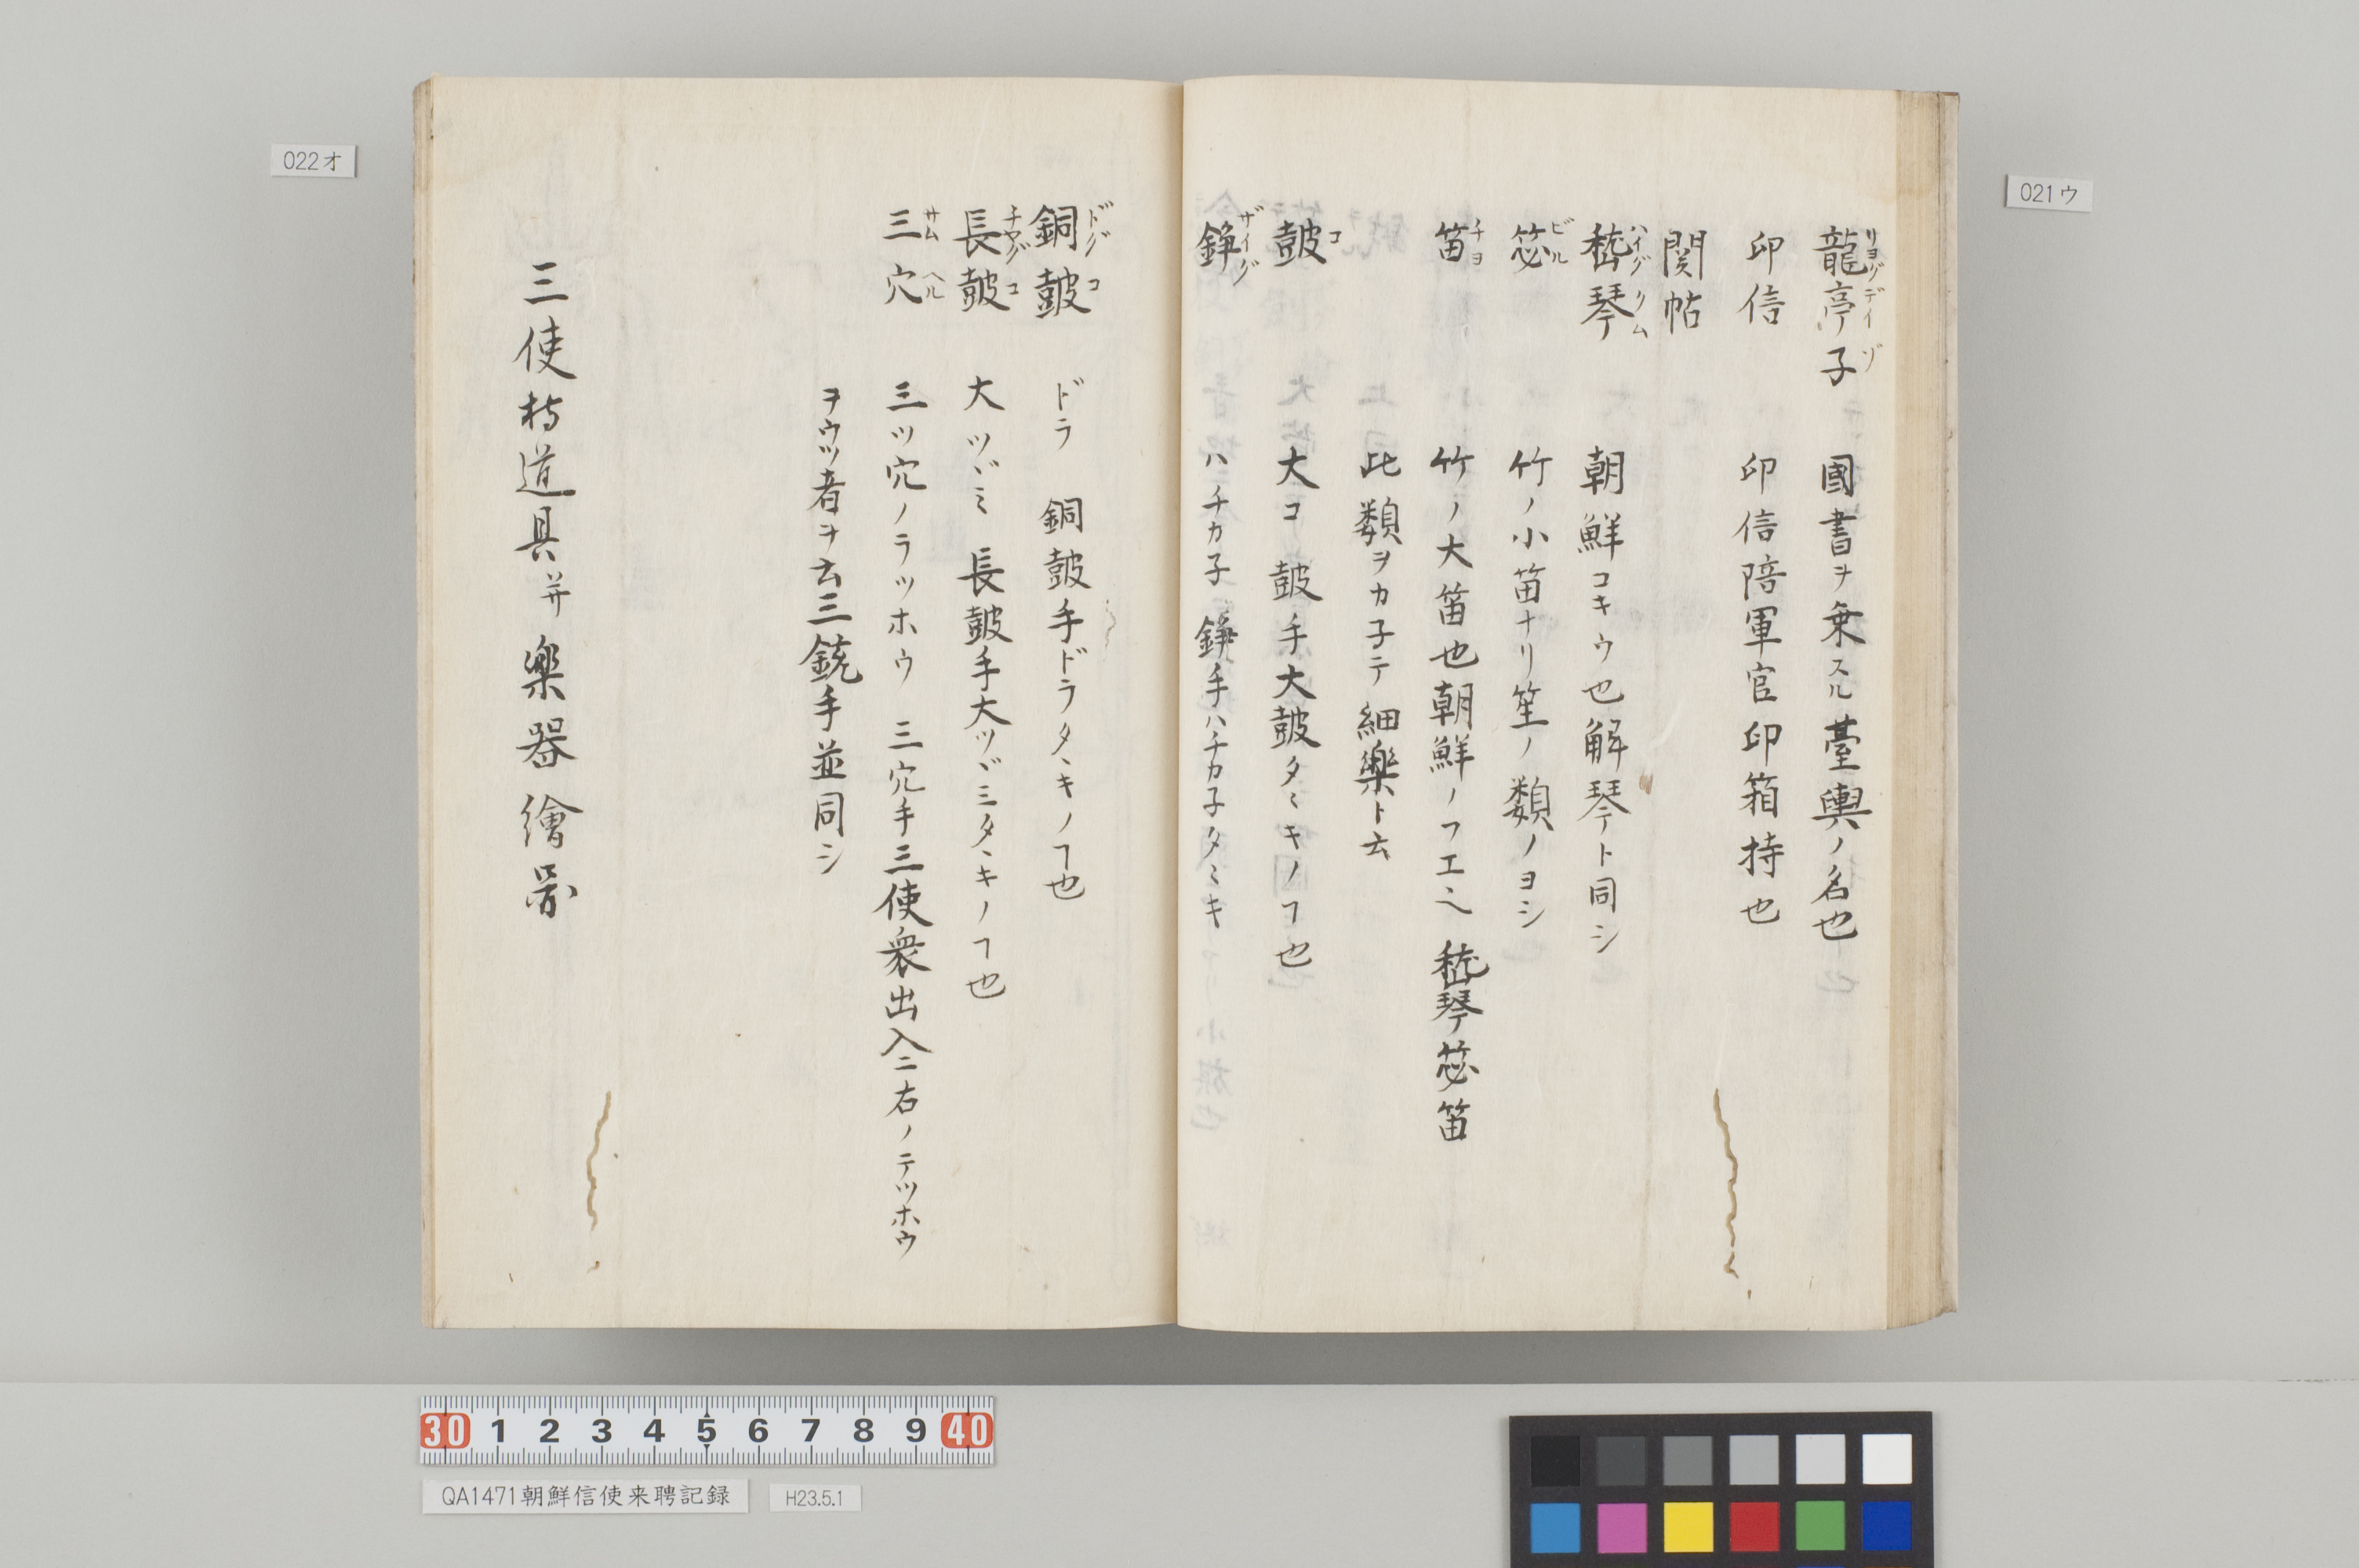 龍亭子 國書ヲ乗スル臺輿ノ名也
リヨグデイヅ
印信 印信陪軍官印箱持也
関帖
嵆琴 朝鮮コキウ也解琴ト同シ
ハイグクム
笜 竹ノ小笛ナリ笙ノ類ノヨシ
ビル
笛 竹ノ大笛也朝鮮ノフエ也 嵆琴笜笛
チヨ
此類ヲカ子テ細樂ト云
皷 大コ皷手大皷タヽキノヿ也
コ
錚 ハチカ子 錚手ハチカ子タヽキ
ザイグ
銅皷 ドラ 銅皷手ドラタヽキノヿ也
ドグコ
長皷 大ツヾミ 長皷手大ツヾミタヽキノヿ也
チヤグコ
三穴 三ツ穴ノラツホウ 三穴手三使衆出入ニ右ノテツホウ
サムヘル
ヲウツ者ヲ云三銃手並同シ
三使持道具并樂器繪圖
022オ
021ウ
30 1 2 3 4 5 6 7 8 9 40
QA1471朝鮮信使来聘記録
H23.5.1